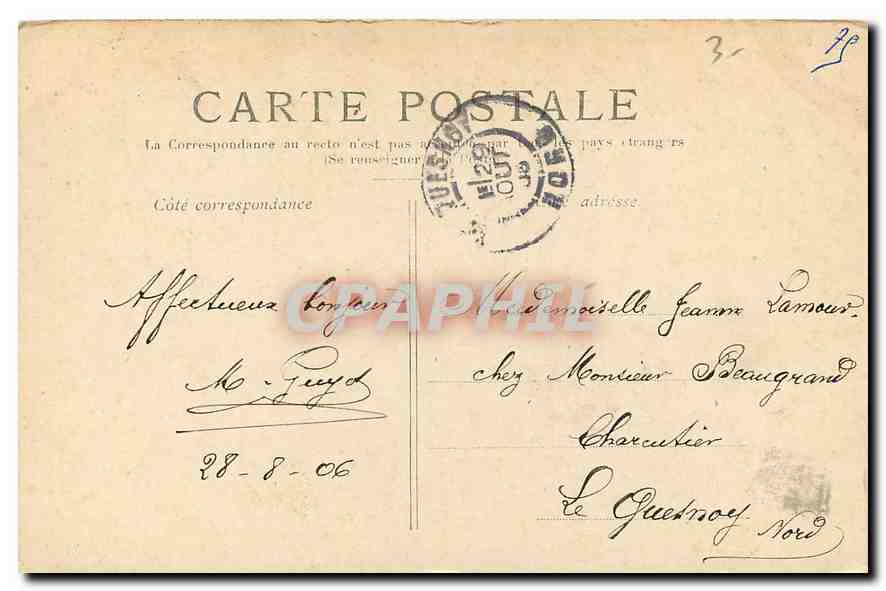 3-
75
CARTE POSTALE
La Correspondance au recto n'est pas par les pays étrangers
(Se renseigner
Côté correspondance
adresse.
QUESNOY
NORD
29
AOUT
06
CPAPHIL
Affectueux bonjour
M. Guyot
28-8-06
Mademoiselle Jeanne Lamour.
chez Monsieur Beaugrand
Charcutier
Le Quesnoy
Nord